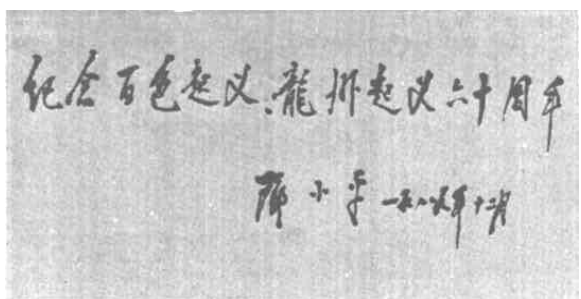 纪念百色起义、龍州起义六十周年
邓小平 一九八九年十二月